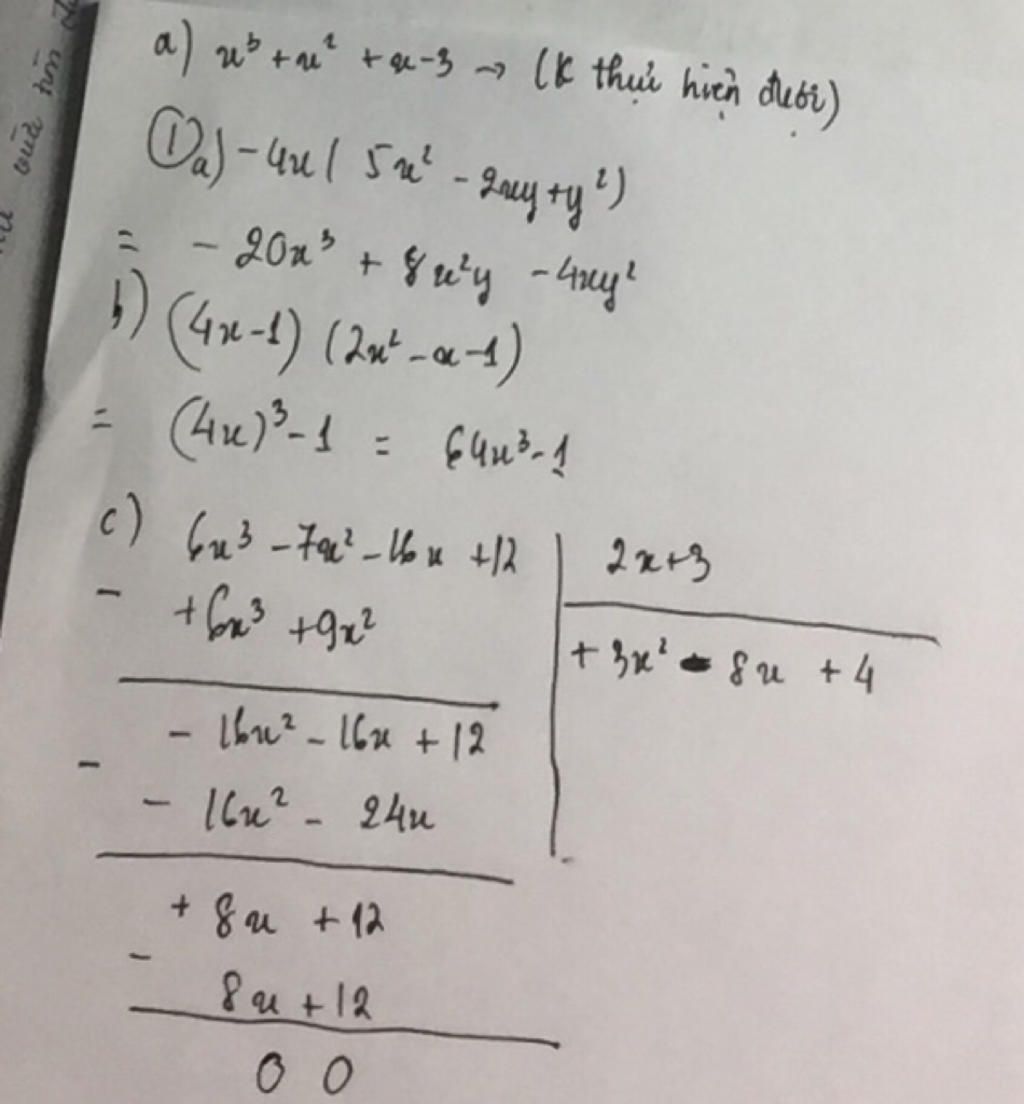 a) x³ + x² + x - 3 → (K thực hiện được)
① a) - 4x ( 5x² - 2xy + y² )
= - 20x³ + 8x²y - 4xy²
b) (4x - 1) (2x² - x - 1)
= (4x)³ - 1 = 64x³ - 1
c) 6x³ - 7x² - 16x + 12 | 2x + 3
- + 6x³ + 9x² | + 3x² - 8x + 4
- 16x² - 16x + 12
- - 16x² - 24x
+ 8x + 12
- 8x + 12
0 0